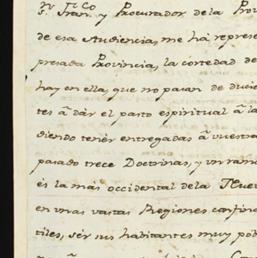 S. Fran.co y Procurador de la Prov
de esa Audiencia, me há repres
presada Provincia, la cortedad de
hay en ella, que no pasan de ducie
tes â dár el pasto espiritual â la
diendo tenér entregadas â vuestra
pasado trece Doctrinas, y un ram
és la más occidental de la Nue
en unas vastas Regiones confin
tiles, sér sus habitantes muy pob